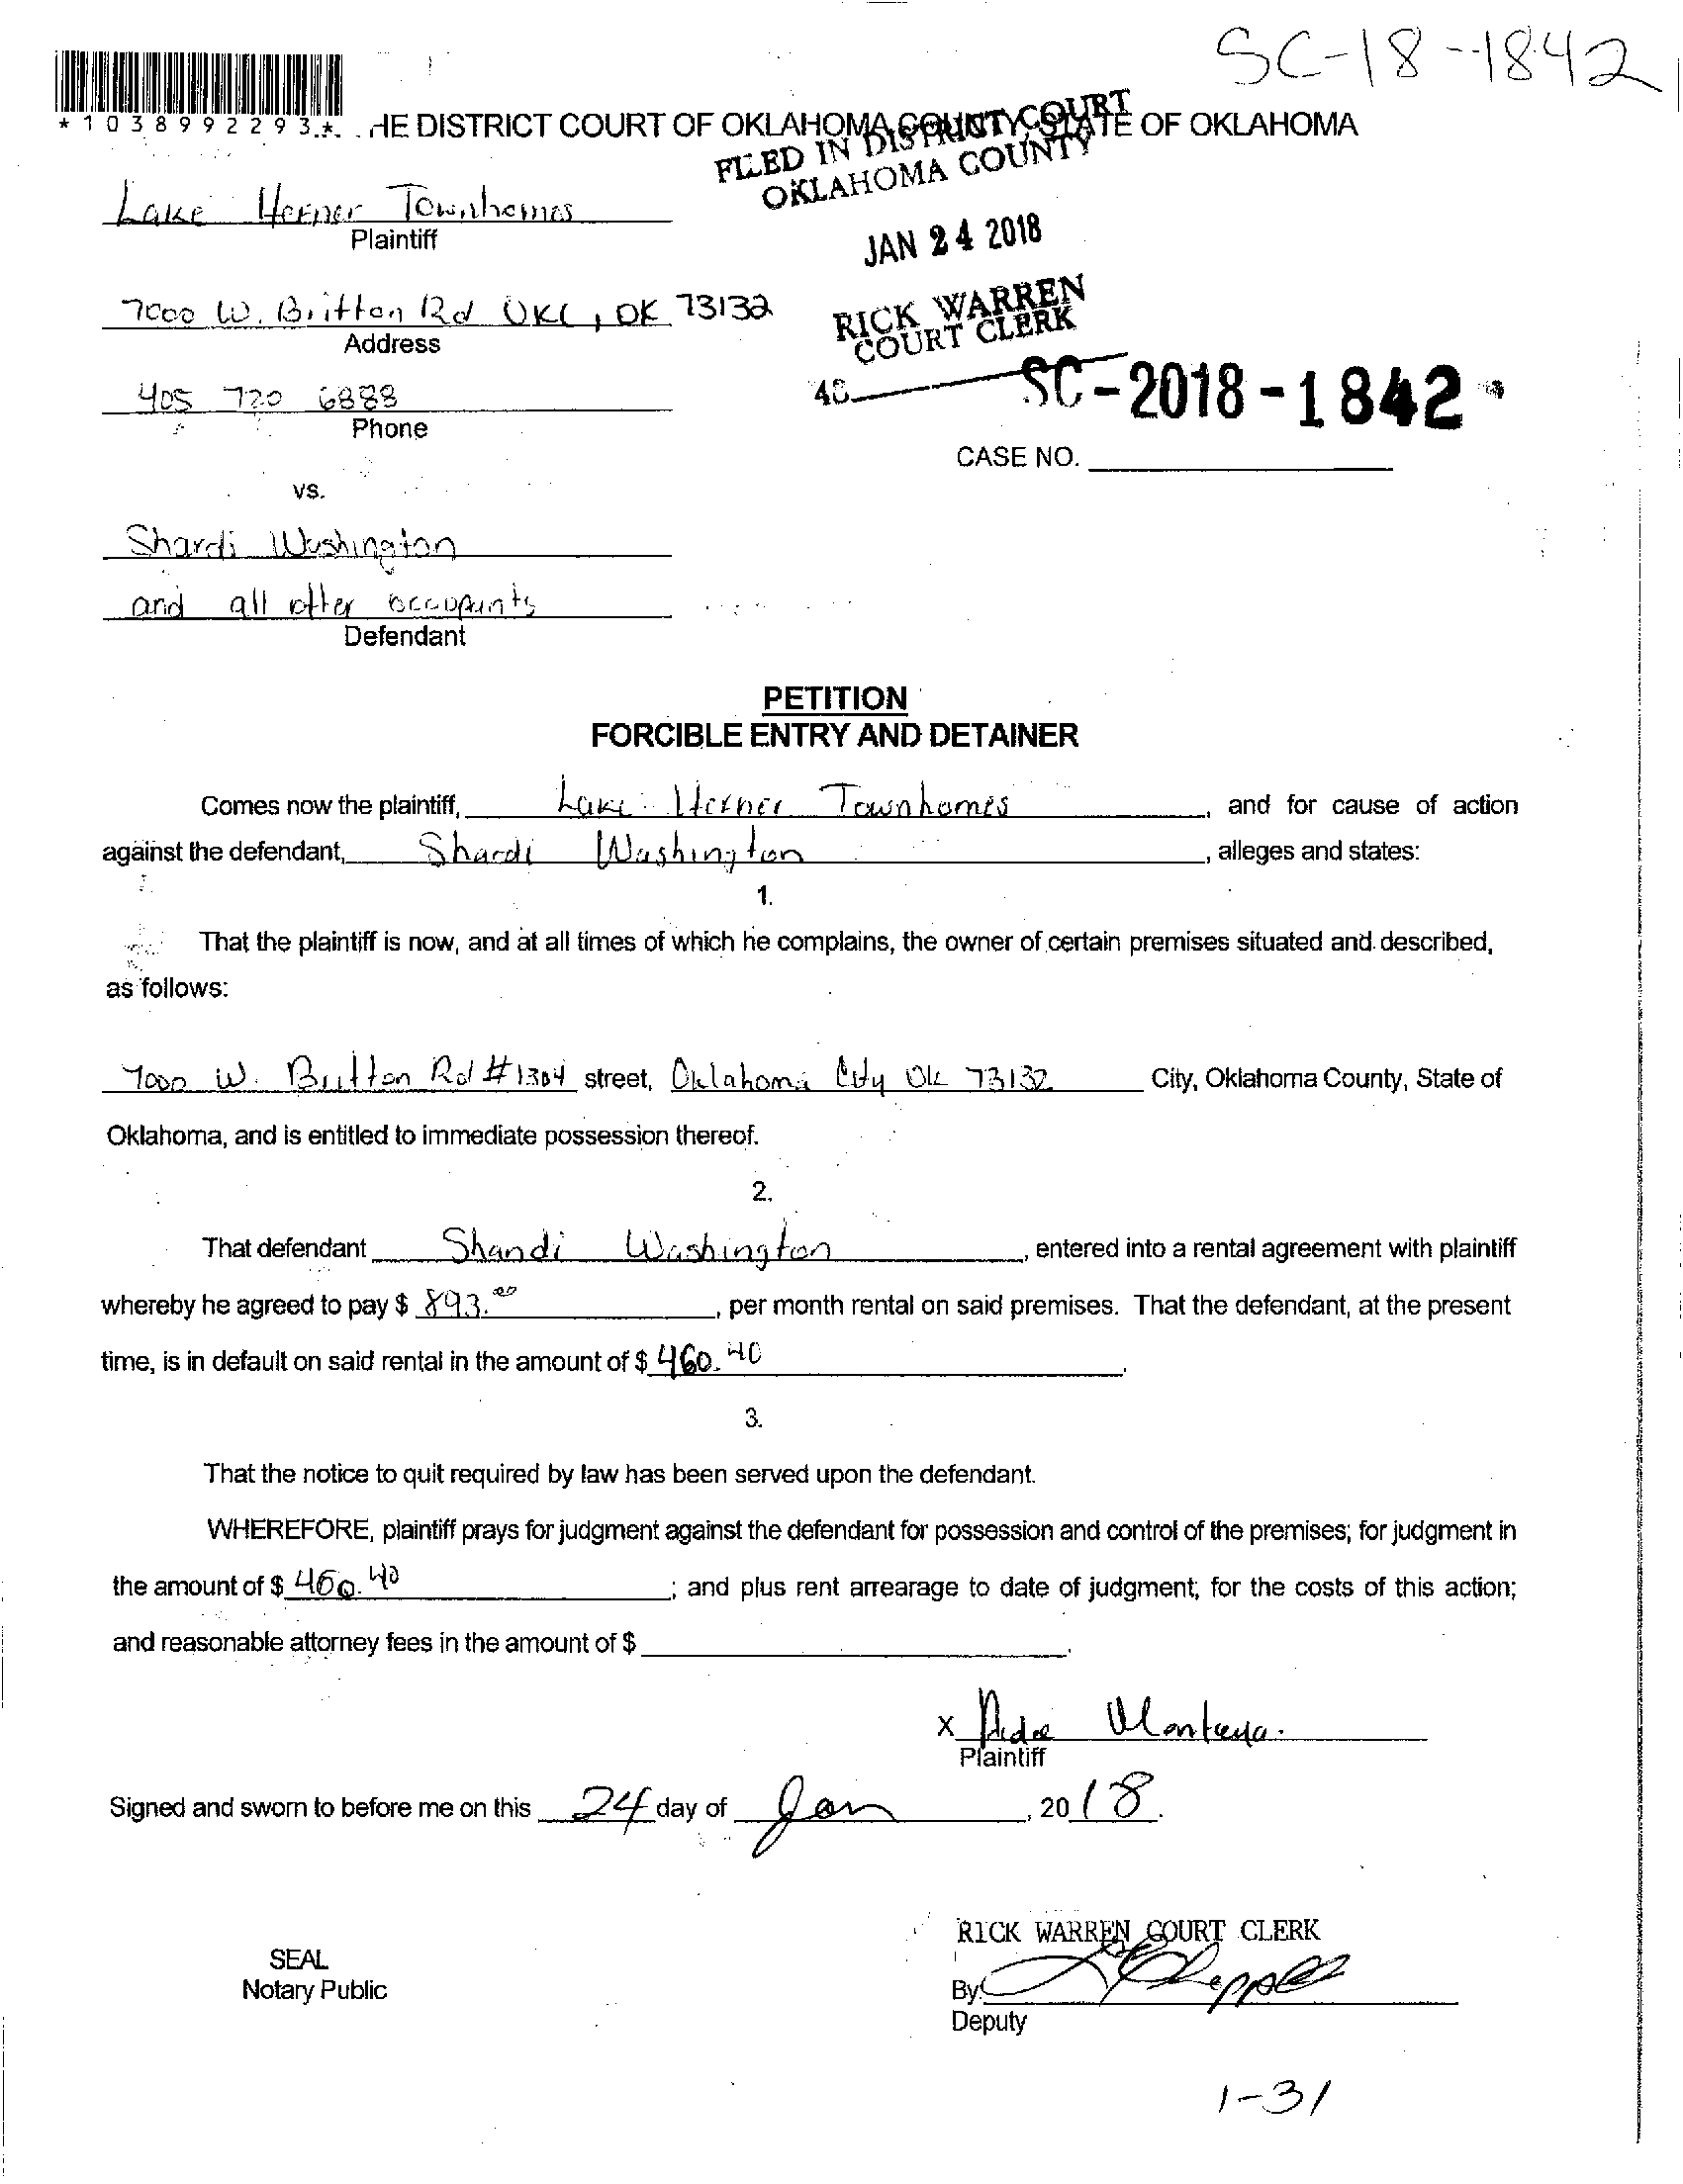 SC-18-1842
*1038992293.*. .HE DISTRICT COURT OF OKLAHOMA COUNTY, STATE OF OKLAHOMA
FILED IN DISTRICT COURT
OKLAHOMA COUNTY
Lake Hefner Townhomes
Plaintiff
JAN 24 2018
7000 W. Britton Rd OKC, OK 73132
Address
RICK WARREN
COURT CLERK
405 720 6888
Phone
SC-2018-1842
CASE NO.
vs.
Shardi Washington
and all other occupants
Defendant
PETITION
FORCIBLE ENTRY AND DETAINER
Comes now the plaintiff, Lake Hefner Townhomes, and for cause of action
against the defendant, Shardi Washington, alleges and states:
1.
That the plaintiff is now, and at all times of which he complains, the owner of certain premises situated and described,
as follows:
7000 W. Britton Rd #1304 street, Oklahoma City Ok 73132 City, Oklahoma County, State of
Oklahoma, and is entitled to immediate possession thereof.
2.
That defendant Shandi Washington, entered into a rental agreement with plaintiff
whereby he agreed to pay $ 893.00, per month rental on said premises. That the defendant, at the present
time, is in default on said rental in the amount of $ 460.40.
3.
That the notice to quit required by law has been served upon the defendant.
WHEREFORE, plaintiff prays for judgment against the defendant for possession and control of the premises; for judgment in
the amount of $ 460.40; and plus rent arrearage to date of judgment; for the costs of this action;
and reasonable attorney fees in the amount of $ .
X
Plaintiff
Signed and sworn to before me on this 24 day of Jan, 2018.
RICK WARREN COURT CLERK
SEAL
Notary Public
By:
Deputy
1-31